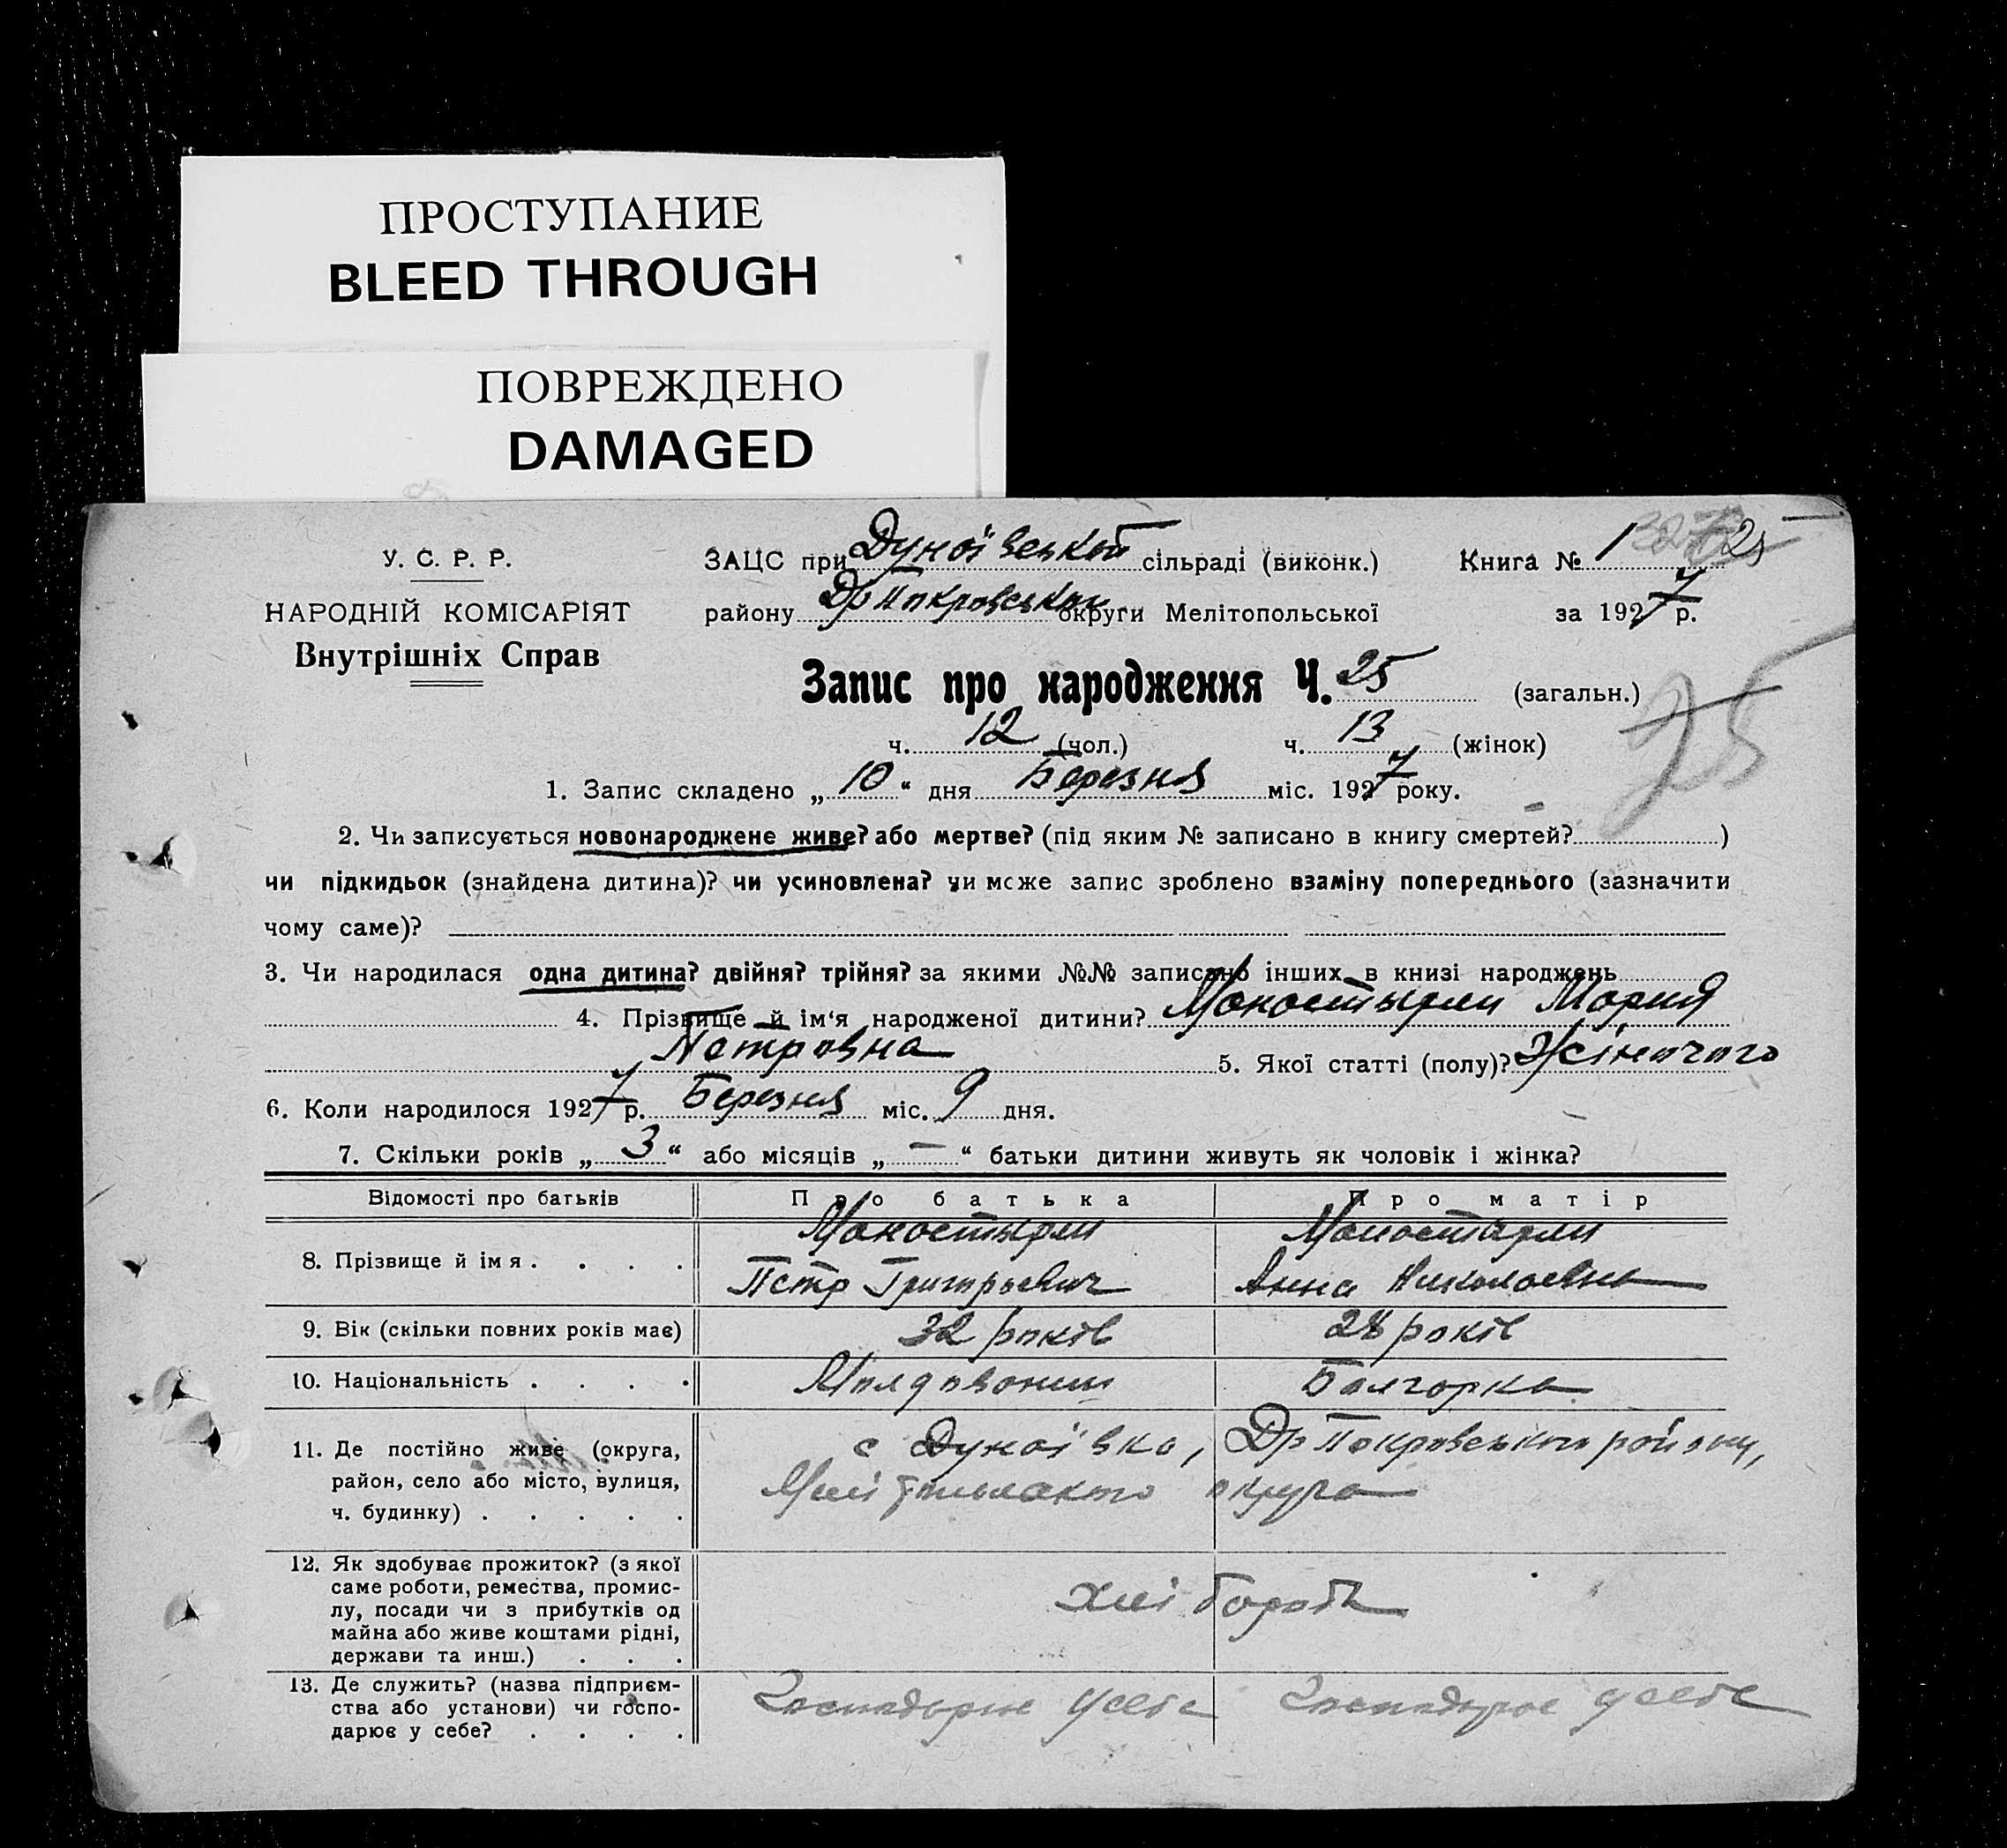 ПРОСТУПАНИЕ
BLEED THROUGH
ПОВРЕЖДЕНО
DAMAGED
У. С. Р. Р.
НАРОДНІЙ КОМІСАРІЯТ
Внутрішніх Справ
ЗАЦС при Дунаївській сільраді (виконк.) Книга № 1 25
району Др Покровськом округи Мелітопольської за 1927 р.
Запис про народження Ч. 25 (загальн.)
25
ч. 12 (чол.) ч. 13 (жінок)
1. Запис складено „ 10 “ дня Березня міс. 1927 року.
2. Чи записується новонароджене живе? або мертве? (під яким № записано в книгу смертей? )
чи підкидьок (знайдена дитина)? чи усиновлена? чи може запис зроблено взаміну попереднього (зазначити
чому саме)?
3. Чи народилася одна дитина? двійня? трійня? за якими №№ записано інших в книзі народжень
4. Прізвище й ім‘я народженої дитини? Манастырли Мария
Петровна 5. Якої статті (полу)? Жіночого
6. Коли народилося 1927 р. Березня міс. 9 дня.
7. Скільки років „ 3 “ або місяців „ — “ батьки дитини живуть як чоловік і жінка?
Відомості про батьків Про батька Про матір
8. Прізвище й імя . . . . Манастырли Манастырли
Петр Григорьевич Анна Николаевна
9. Вік (скільки повних років має) 32 років 28 років
10. Національність . . . . Молдованин Болгарка
11. Де постійно живе (округа, район, село або місто, вулиця, ч. будинку) . . . . . с Дунаївка, Др Покровського району,
округа
12. Як здобуває прожиток? (з якої
саме роботи, ремества, промис-
лу, посади чи з прибутків од
майна або живе коштами рідні,
держави та инш.) . . . хлібороб
13. Де служить? (назва підприєм-
ства або установи) чи госпо-
дарює у себе? . . . . Господарює у себе Господарює у себе